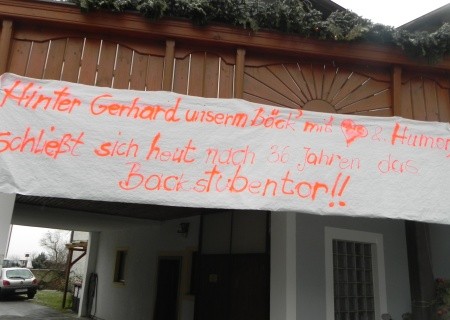 Hinter Gerhard unserm Böck' mit ♥ & Humor
schließt sich heut nach 36 Jahren das
Backstubentor!!